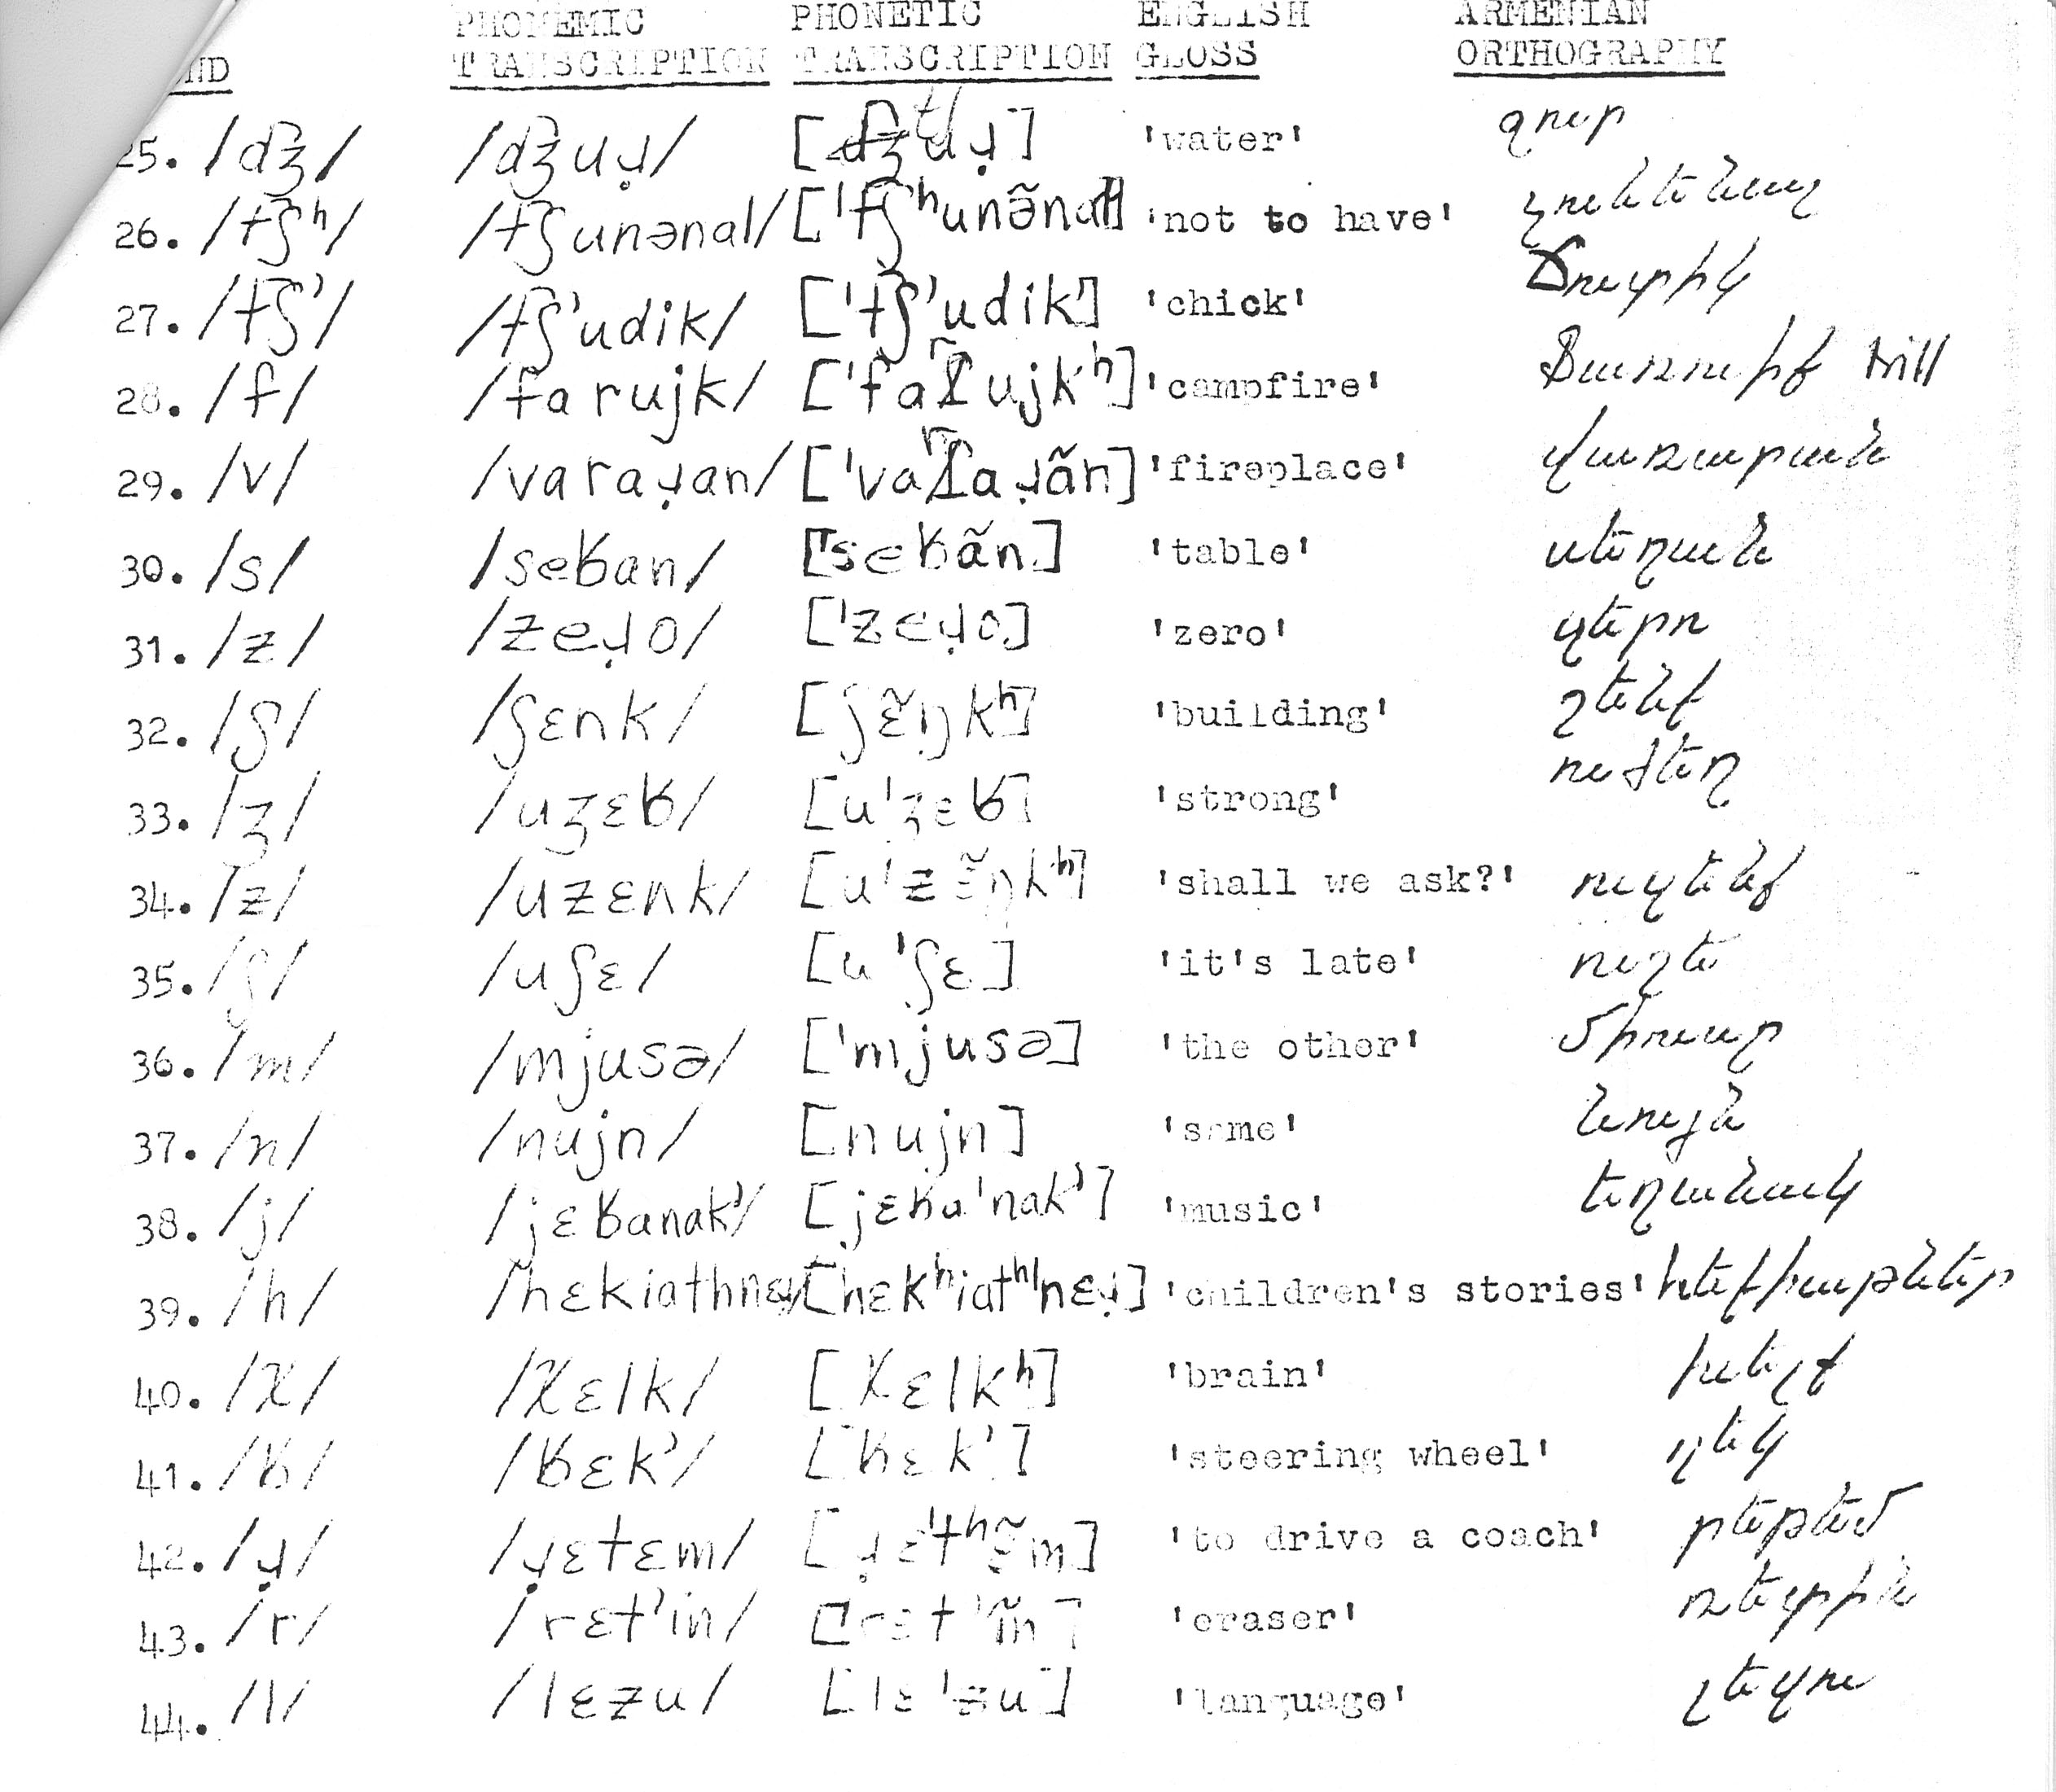 PHONEMIC PHONETIC ENGLISH ARMENIAN
TRANSCRIPTION TRANSCRIPTION GLOSS ORTHOGRAPHY
25. /d͡ʒ/ /d͡ʒuɹ̣/ 'water' ջուր
26. /t͡ʃʰ/ /t͡ʃunənal/ ['t͡ʃʰunə̃nal] 'not to have' չունենալ
27. /t͡ʃ'/ /t͡ʃ'udik/ ['t͡ʃ'udik'] 'chick' ճուտիկ
28. /f/ /farujk/ ['farujkʰ] 'campfire' ֆառուիք trill
29. /v/ /varaɹ̣an/ ['varaɹ̣ãn] 'fireplace' վառարան
30. /s/ /seʁan/ ['seʁãn] 'table' սեղան
31. /z/ /zeɹ̣o/ ['zeɹ̣o] 'zero' զերո
32. /ʃ/ /ʃɛnk/ [ʃɛ̃ŋkʰ] 'building' շենք
33. /ʒ/ /uʒɛʁ/ [u'ʒɛʁ] 'strong' ուժեղ
34. /z/ /uzɛnk/ [u'zɛ̃ŋkʰ] 'shall we ask?' ուզենք
35. /ʃ/ /uʃɛ/ [u'ʃɛ] 'it's late' ուշե
36. /m/ /mjusə/ ['mjusə] 'the other' միուսը
37. /n/ /nujn/ [nujn] 'same' նույն
38. /j/ /jɛʁanak'/ [jɛʁa'nak'] 'music' եղանակ
39. /h/ /hɛkiathnɛɹ̣/ [hɛkʰiatʰ'nɛɹ̣] 'children's stories' հեքիաթներ
40. /χ/ /χɛlk/ [χɛlkʰ] 'brain' խելք
41. /ʁ/ /ʁɛk'/ [ʁɛk'] 'steering wheel' ղեկ
42. /ɹ̣/ /ɹ̣ɛtɛm/ [ɹ̣ɛ'tʰɛ̃m] 'to drive a coach' րեթեմ
43. /r/ /rɛt'in/ [rɛt'ĩn] 'eraser' ռետին
44. /l/ /lɛzu/ [lɛ'zu] 'language' լեզու